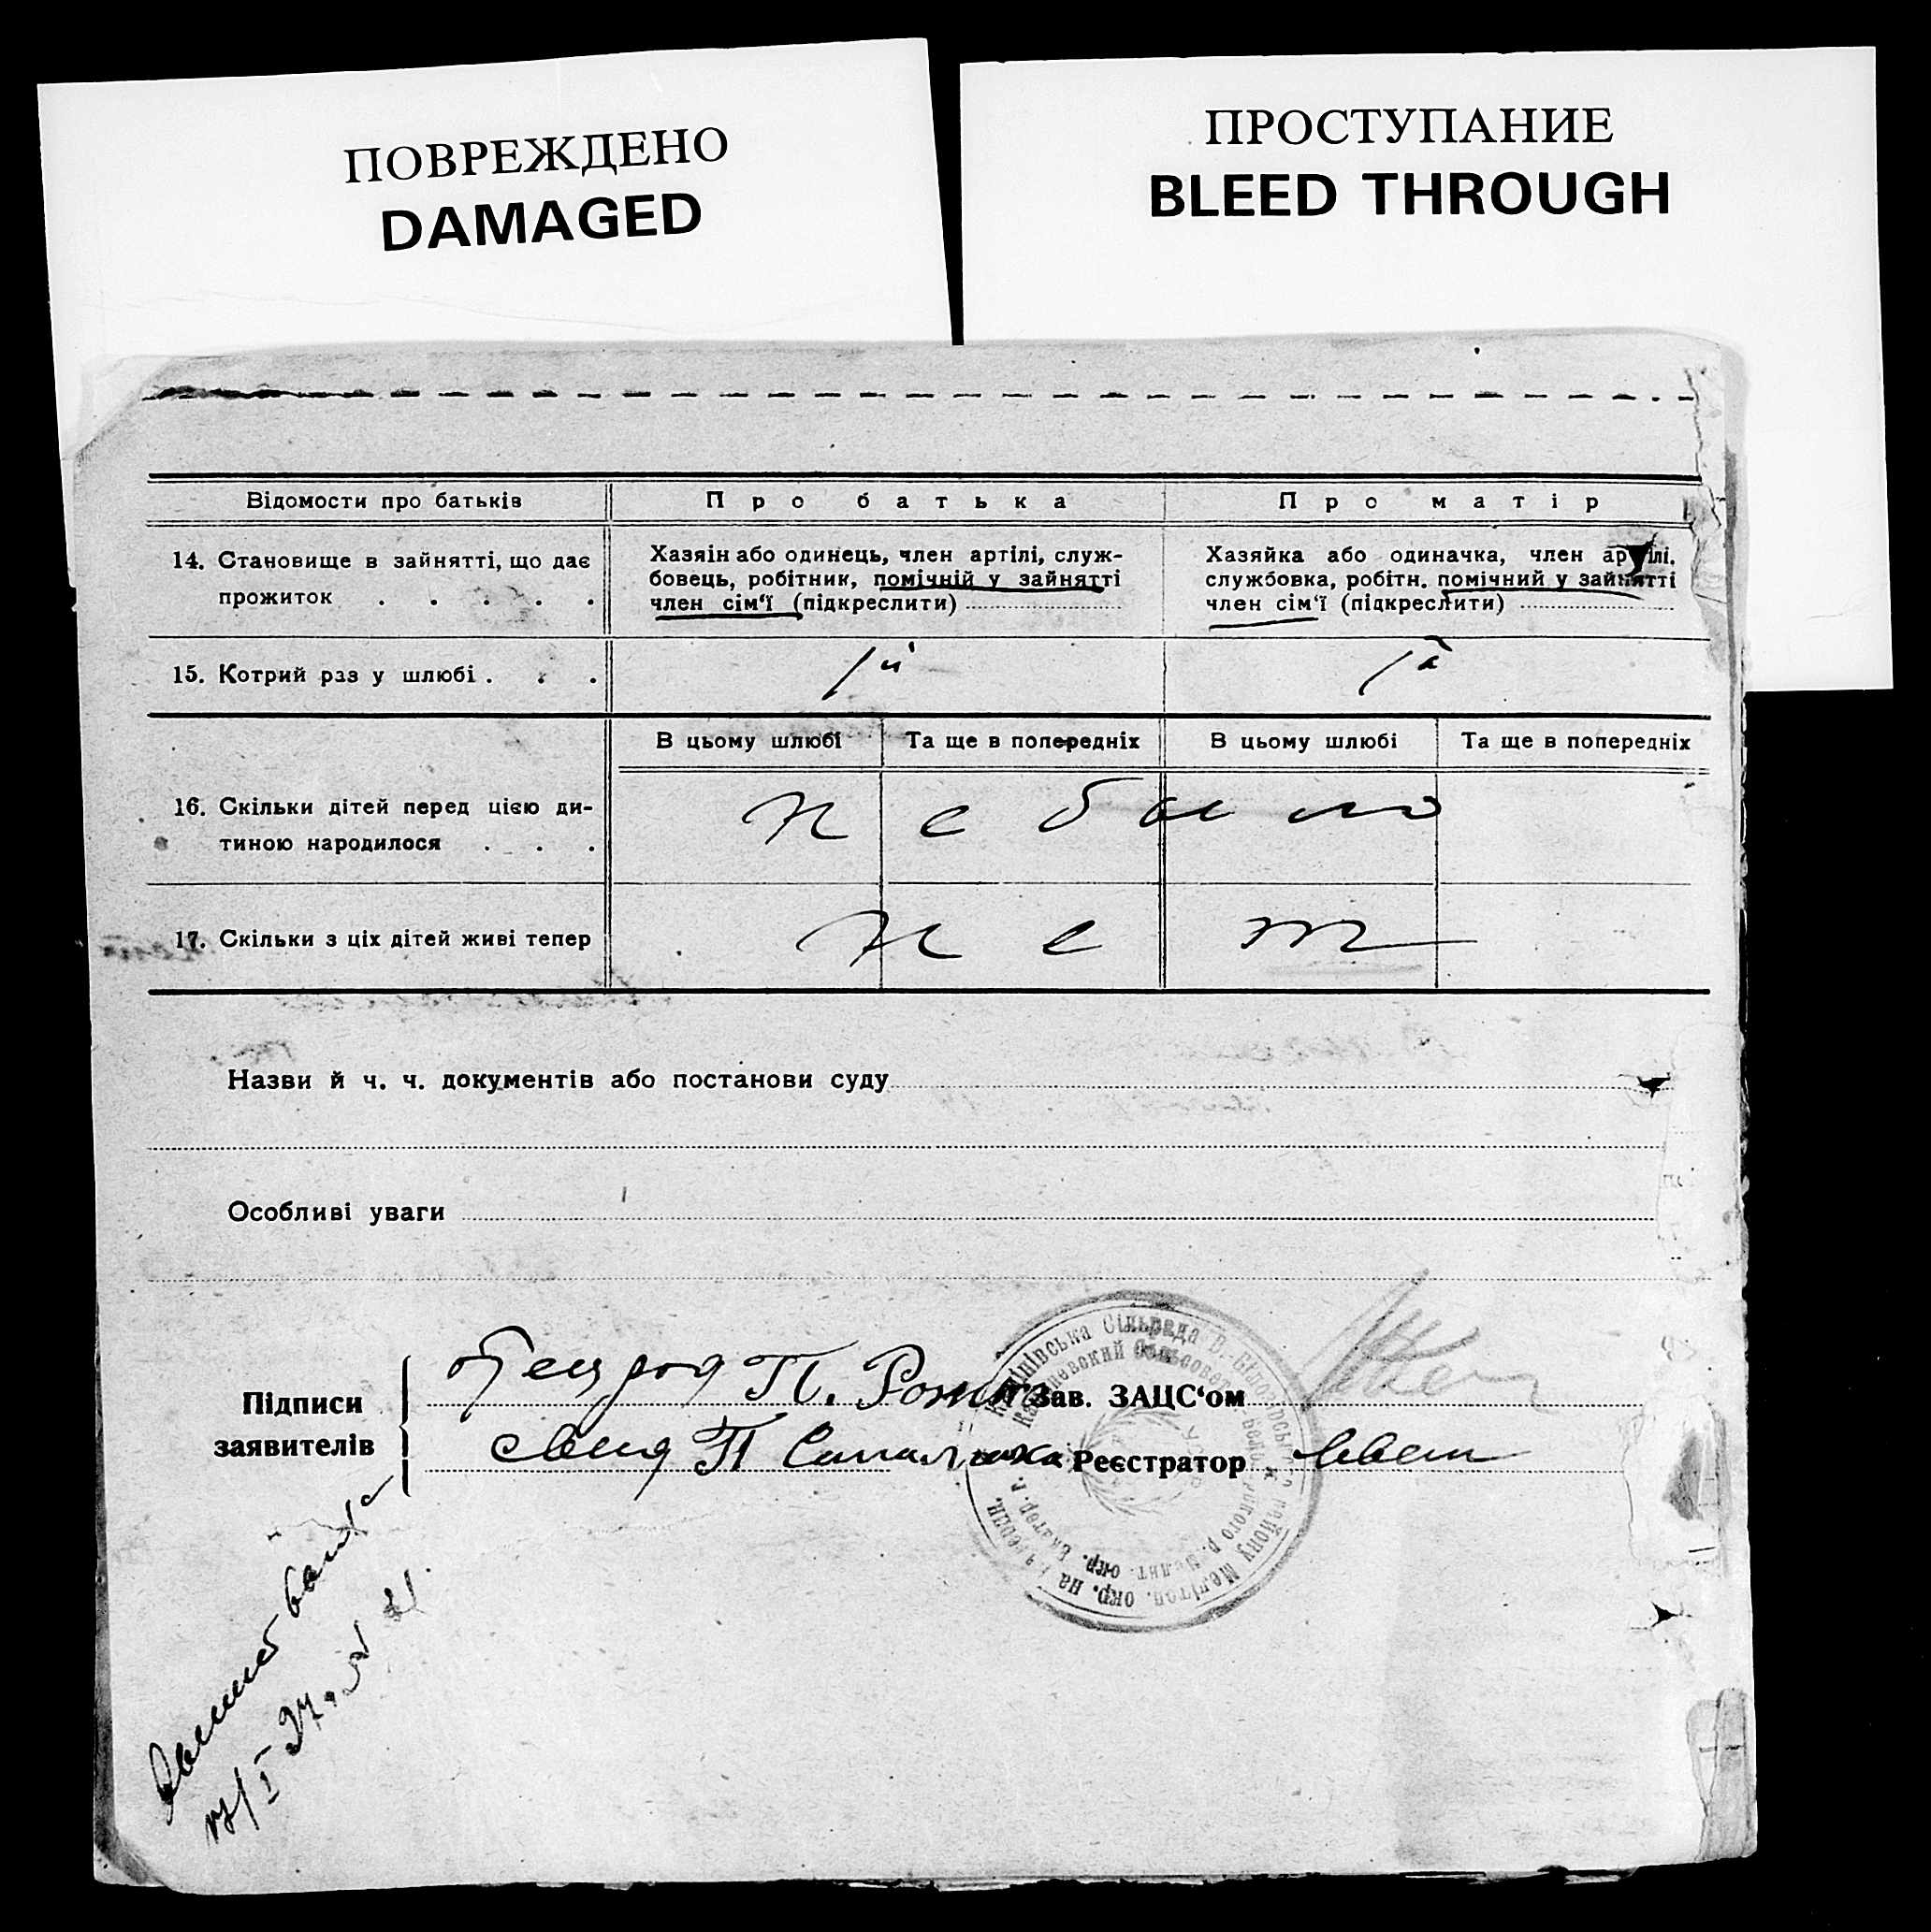 ПОВРЕЖДЕНО
DAMAGED
ПРОСТУПАНИЕ
BLEED THROUGH
Відомости про батьків
Про батька
Про матір
14. Становище в зайнятті, що дає
прожиток . . . . .
Хазяін або одинець, член артілі, служ-
бовець, робітник, помічній у зайнятті
член сім'ї (підкреслити)
Хазяйка або одиначка, член артілі,
службовка, робітн. помічний у зайнятті
член сім'ї (підкреслити)
15. Котрий раз у шлюбі . . .
1й
1а
В цьому шлюбі
Та ще в попередніх
В цьому шлюбі
Та ще в попередніх
16. Скільки дітей перед цією ди-
тиною народилося . . .
не было
17. Скільки з ціх дітей живі тепер
нет
Назви й ч. ч. документів або постанови суду
Особливі уваги
Підписи
заявителів
П.
Зав. ЗАЦС'ом
П
Реєстратор
Сільрада
район
окр. на